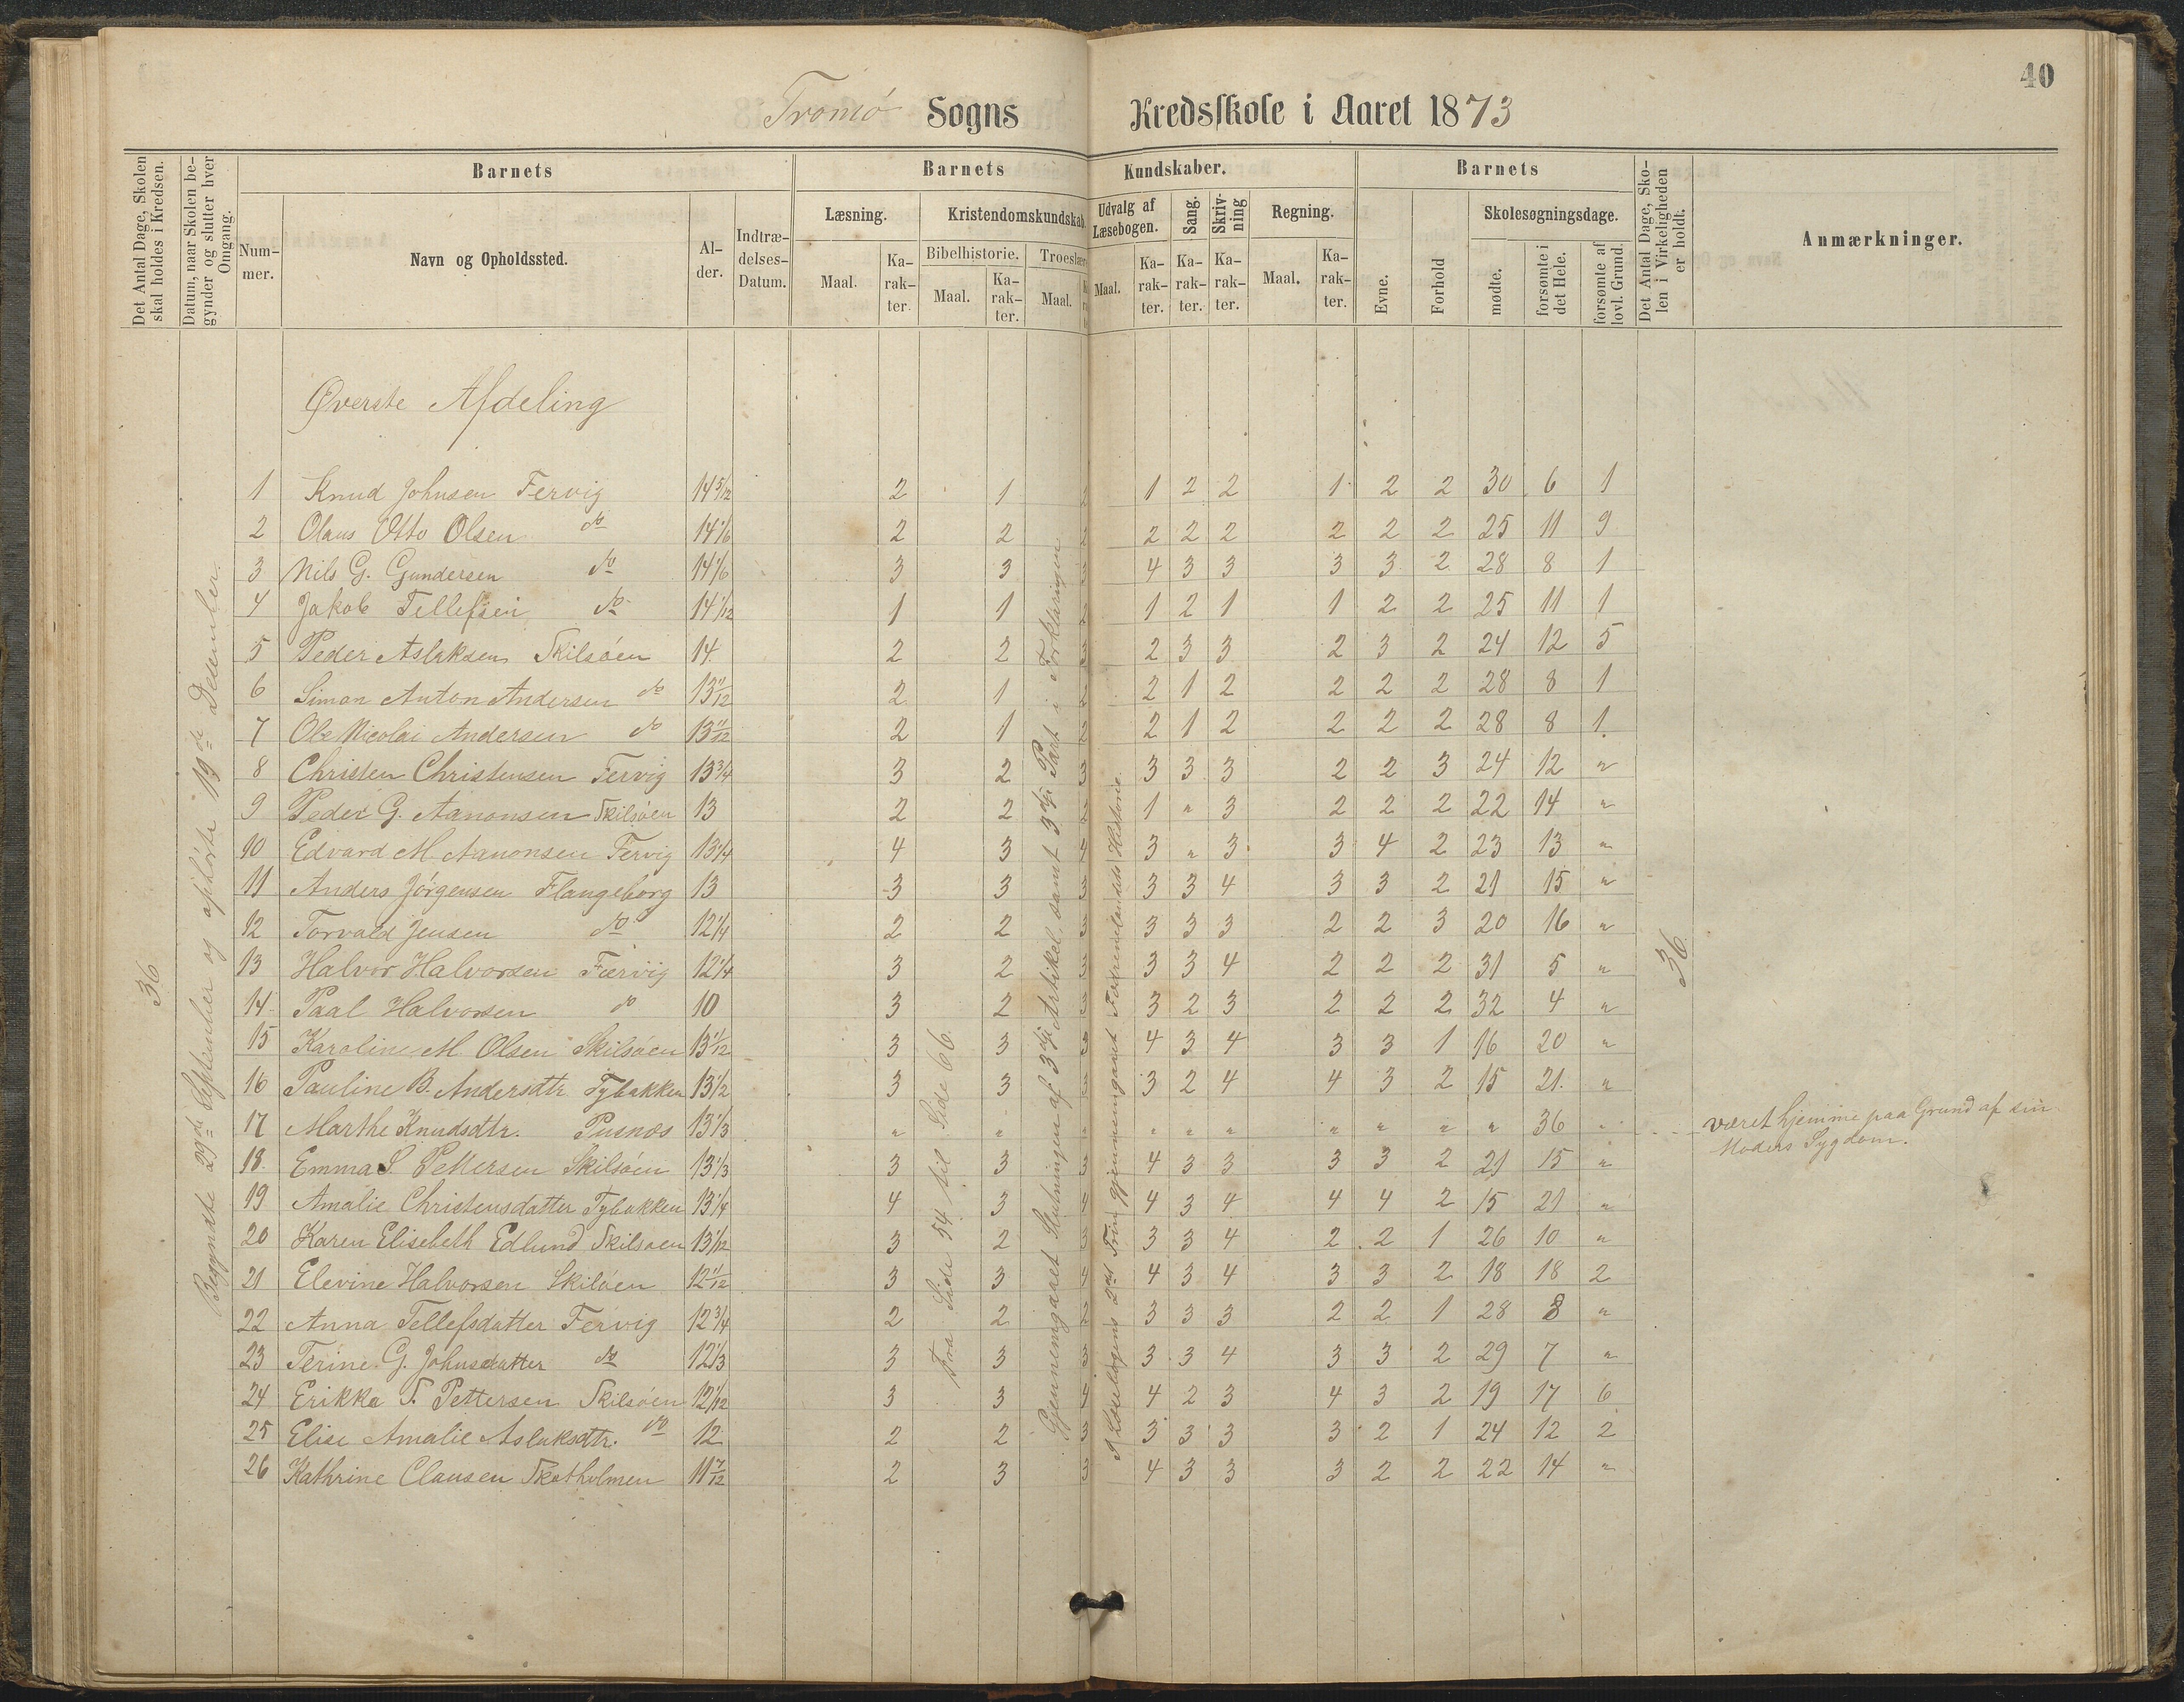 40
Tromø Sogns Kredsskole i Aaret 1873
Det Antal Dage, Skolen skal holdes i Kredsen.
Datum, naar Skolen begynder og slutter hver Omgang.
Barnets
Nummer.
Navn og Opholdssted.
Alder.
Indtrædelses-Datum.
Barnets Kundskaber.
Læsning.
Maal.
Karakter.
Kristendomskundskab.
Bibelhistorie.
Maal.
Karakter.
Troeslære
Maal.
Udvalg af Læsebogen.
Maal.
Karakter.
Sang.
Karakter.
Skrivning
Karakter.
Regning.
Maal.
Karakter.
Barnets
Evne.
Forhold
Skolesøgningsdage.
mødte.
forsømte i det Hele.
forsømte af lovl. Grund.
Det Antal Dage, Skolen i Virkeligheden er holdt.
Anmærkninger.
Øverste Afdeling
36
Begyndte 29de September og ophørte 19de December.
Fra Side 54 til Side 66.
Gjennemgaaet Slutningen af 3die Artikel, samt 3die Part i Forklaringen
I Læsebogens 2det Trin gjennemgaaet Fædrenelandets Historie.
36
1 Knud Johnsen Fervig 14 5/12 2 1 2 1 2 2 1 2 2 30 6 1
2 Olaus Otto Olsen do 14 1/6 2 2 2 2 2 2 2 2 2 25 11 9
3 Nils G. Gundersen do 14 1/6 3 3 3 4 3 3 3 3 2 28 8 1
4 Jakob Tellefsen do 14 1/12 1 1 2 1 2 1 1 2 2 25 11 1
5 Peder Aslaksen Skilsöen 14 2 2 3 2 3 3 2 3 2 24 12 5
6 Simon Anton Andersen do 13 11/12 2 1 2 2 1 2 2 2 2 28 8 1
7 Ole Nicolai Andersen do 13 11/12 2 1 2 2 1 2 2 2 2 28 8 1
8 Christen Christensen Fervig 13 3/4 3 2 3 3 3 3 2 2 3 24 12 "
9 Peder G. Aanonsen Skilsöen 13 2 2 2 1 " 3 2 2 2 22 14 "
10 Edvard M. Aanonsen Fervig 13 1/4 4 3 4 3 " 3 3 4 2 23 13 "
11 Anders Jörgensen Flangeborg 13 3 3 3 3 3 4 3 3 2 21 15 "
12 Torvald Jensen do 12 1/4 2 2 3 3 3 3 2 2 3 20 16 "
13 Halvor Halvorsen Færvig 12 1/4 3 2 3 3 3 4 2 2 2 31 5 "
14 Paal Halvorsen do 10 3 2 3 3 2 3 2 2 2 32 4 "
15 Karoline M. Olsen Skilsöen 13 1/12 3 3 3 4 3 4 3 3 1 16 20 "
16 Pauline B. Andersdtr Tybakken 13 1/2 3 3 3 3 2 4 4 3 2 15 21 "
17 Marthe Knudsdtr. Pusnæs 13 1/3 " " " " " " " " " " 36 " været hjemme paa Grund af sin
Moders Sygdom.
18 Emma S Pettersen Skilsöen 13 1/3 3 3 3 4 3 3 3 3 2 21 15 "
19 Amalie Christensdatter Tybakken 13 1/4 4 3 4 4 3 4 4 4 2 15 21 "
20 Karen Elisebeth Edlund Skilsøen 13 1/12 3 2 3 3 3 4 2 2 1 26 10 "
21 Elevine Halvorsen Skilöen 12 11/12 3 3 4 4 3 4 3 3 2 18 18 2
22 Anna Tellefsdatter Fervig 12 3/4 2 2 2 3 3 3 2 2 1 28 8 "
23 Terine G. Johnsdatter do 12 1/3 3 3 3 3 3 4 3 3 2 29 7 "
24 Erikka S. Pettersen Skilsöen 12 1/12 3 3 4 4 2 3 4 3 2 19 17 6
25 Elise Amalie Aslaksdtr. do 12 2 2 3 3 3 3 3 2 1 24 12 2
26 Kathrine Clausen Skotholmen 11 7/12 2 3 3 4 3 3 3 2 2 22 14 "